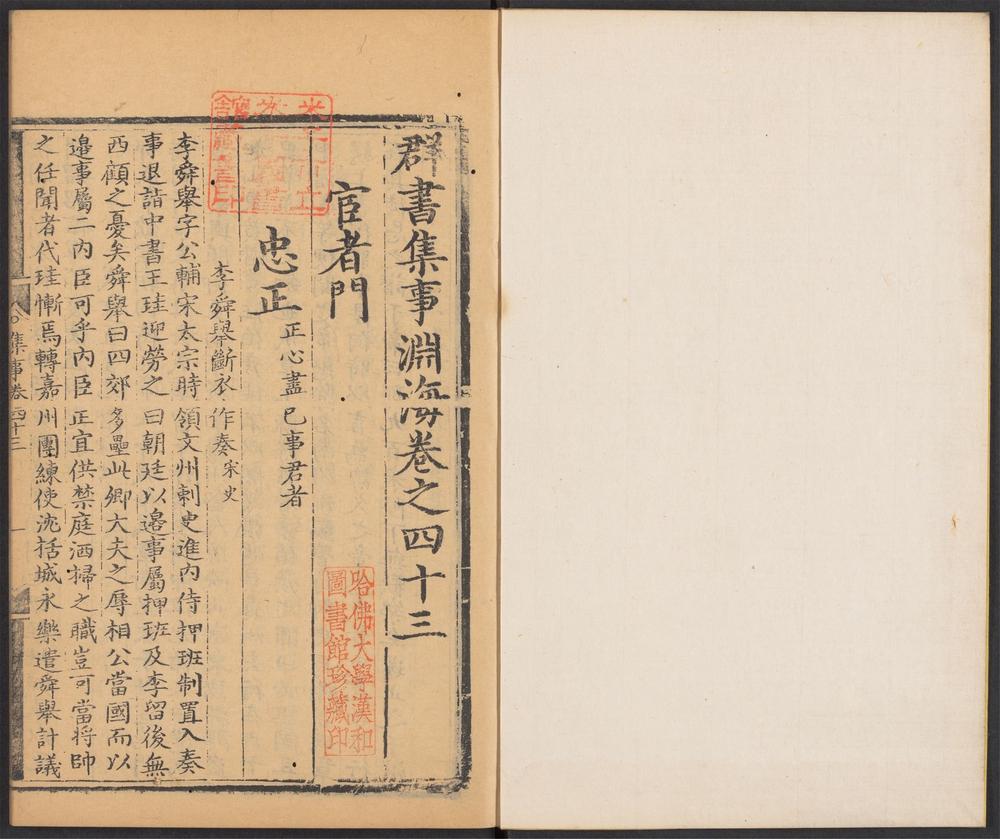 群書集事淵海卷之四十三
宦者門
忠正 正心盡已事君者
李舜舉斷衣作奏 宋史
李舜舉字公輔宋太宗時領文州刺史進內侍押班制置入奏
事退詣中書王珪迎勞之曰朝廷以邉事屬押班及李留後無
西顧之憂矣舜舉曰四郊多壘此卿大夫之辱相公當國而以
邉事屬二內臣可乎內臣正宜供禁庭洒掃之職豈可當將帥
之任聞者代珪慚焉轉嘉州團練使沈括城永樂遣舜舉計議
集事卷四十三 一
哈佛大學漢和
圖書館珍藏印